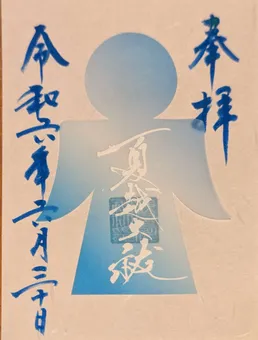 奉拝
夏越大祓
令和六年六月三十日